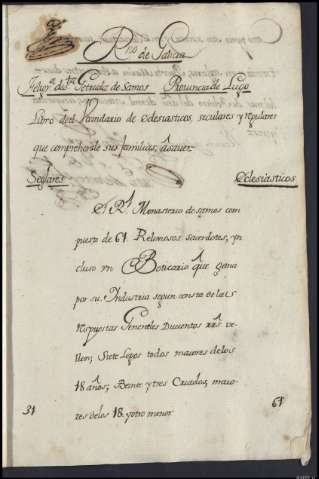 Rno de Galicia
Felig.a de Sta Gertrudiz de Samos Provincia de Lugo
Libro del Vecindario de Eclesiasticos, seculares y regulares
que comprehende sus familias, a saver
Seglares Eclesiasticos
El Rl Monasterio de samos com
puesto de 61 Relixiosos sacerdotes, yn
cluso vn Boticario que gana
por su Industria segun consta de las
Respuestas Generales Ducientos rrs ve
llon; Siete Legos todos maiores de los
18 años; Beinte y tres Criados, maio
res de los 18 y otro menor
31 61